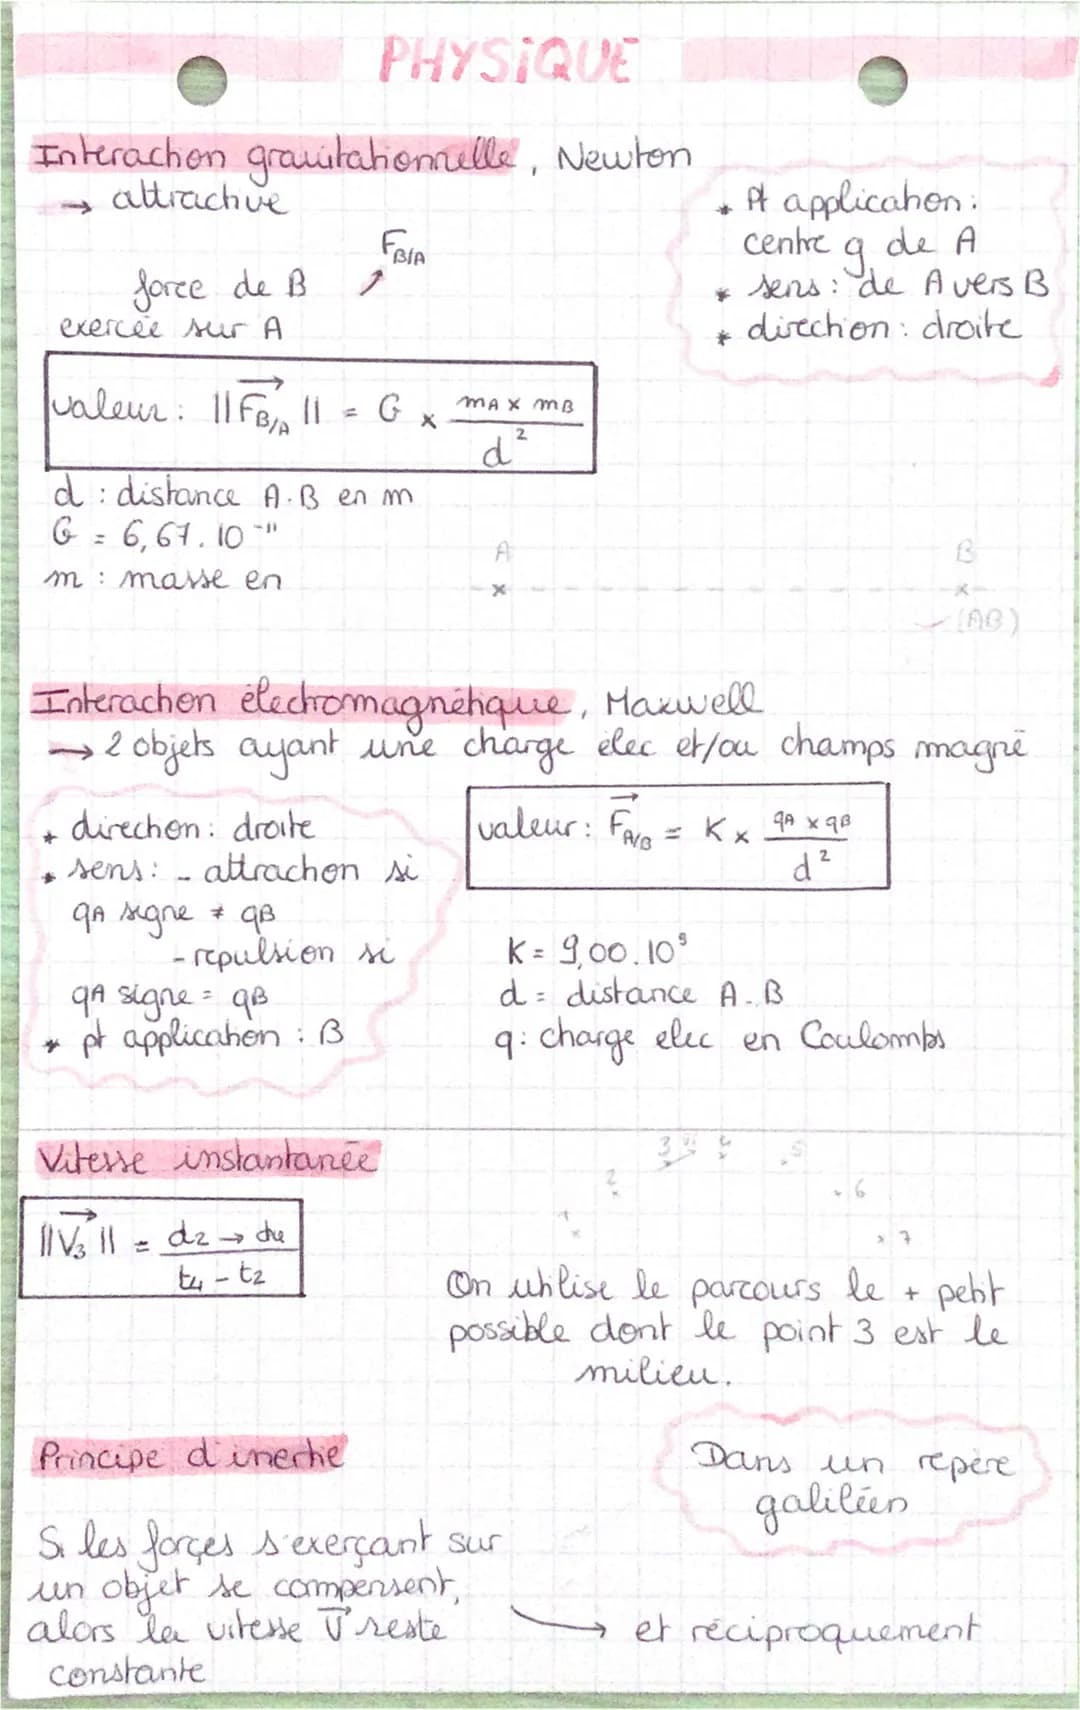 PHYSIQUE
Interaction gravitationnelle, Newton
→ attractive
F B/A
force de B
exercée sur A
* Pt application :
centre g de A
* sens : de A vers B
* direction : droite
valeur : ||F B/A|| = G × mA × mB / d²
d : distance A.B en m
G = 6,67.10⁻¹¹
m : masse en
A B
(AB)
Interaction électromagnétique, Maxwell
→ 2 objets ayant une charge élec et/ou champs magné
* direction : droite
* sens : - attraction si
qA signe ≠ qB
- repulsion si
qA signe = qB
* pt application : B
valeur : F A/B = K × qA × qB / d²
K = 9,00.10⁹
d = distance A-B
q : charge elec en Coulombs
Vitesse instantanée
||V₃|| = d2 → d4 / t4 - t2
1 2 3 4 5 6 7
On utilise le parcours le + petit
possible dont le point 3 est le
milieu.
Principe d'inertie
Dans un repère
galiléen
Si les forçes s'exerçant sur
un objet se compensent,
alors la vitesse V reste
constante
→ et réciproquement